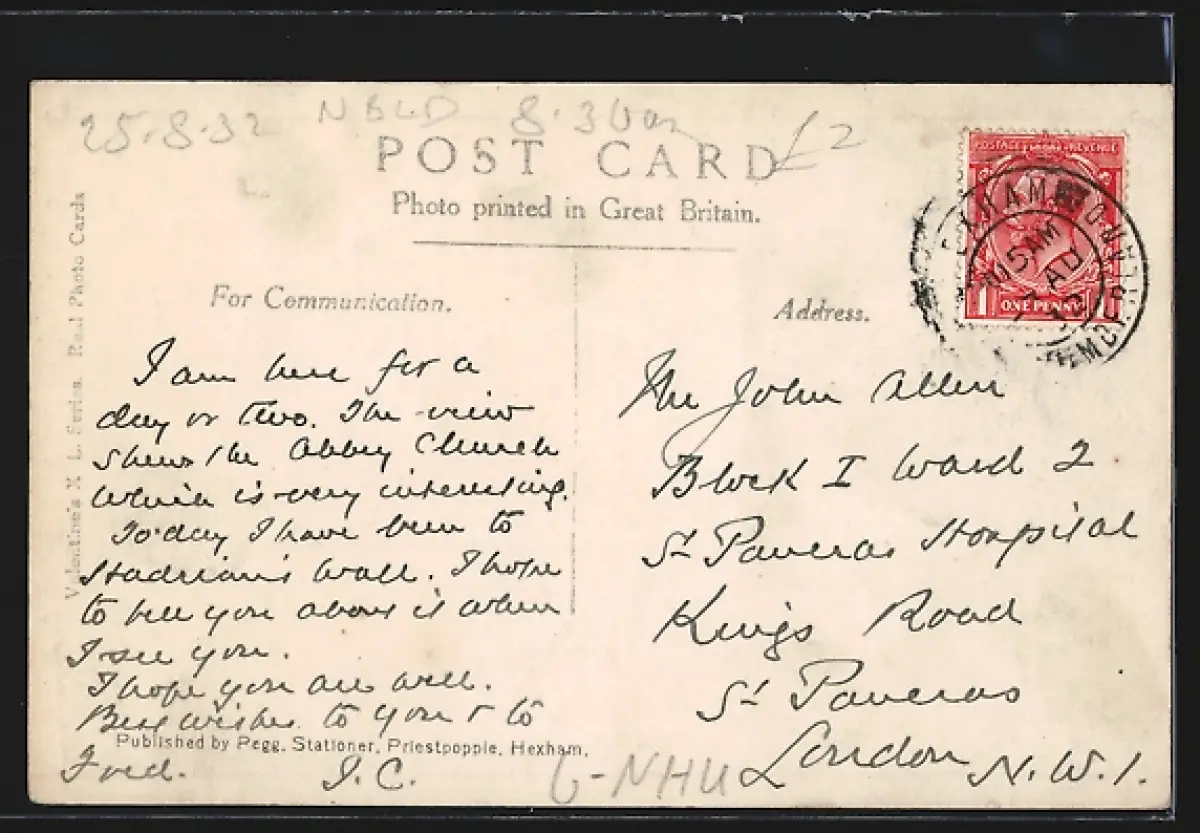 25-8-32 NBLD 8.30am £2
POST CARD
Photo printed in Great Britain.
For Communication.
Address.
POSTAGE REVENUE
ONE PENNY
1 1
HEXHAM NORTHUMBERLAND
AU
Valentine's X L. Series. Real Photo Cards
I am here for a
day or two. The view
shews the Abbey Church
which is very interesting.
To-day I have been to
Hadrian's Wall. I hope
to tell you about it when
I see you.
I hope you are well.
Best wishes to you & to
Fred. J.C.
Published by Pegg, Stationer, Priestpopple, Hexham.
Mr John Allen
Block I Ward 2
St Pancras Hospital
Kings Road
St Pancras
London N.W.1.
NHU